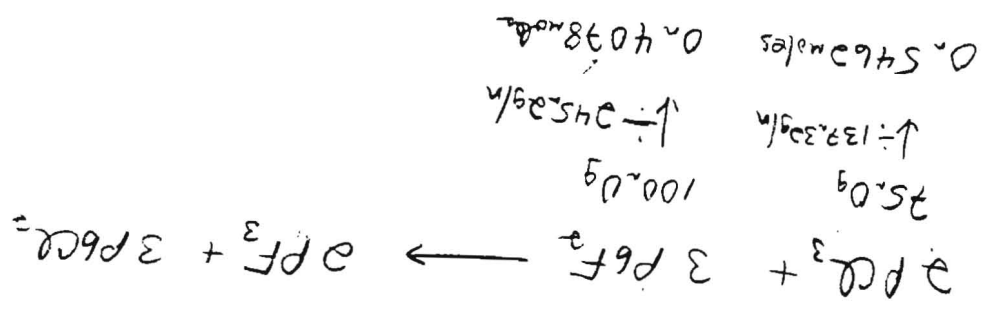 2 PCl₃ + 3 PbF₂ → 2 PF₃ + 3 PbCl₂
75.0g 100.0g
↓ ÷ 137.32g/m ↓ ÷ 245.2g/m
0.5462 moles 0.4078 moles